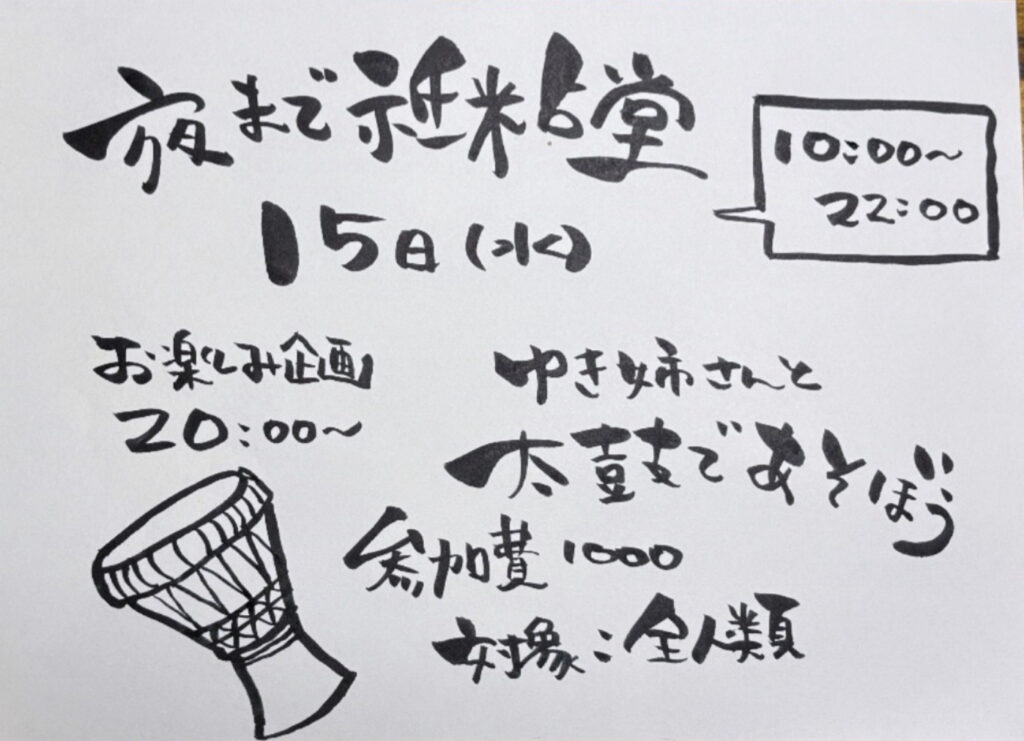 夜まで秖粘堂
15日(水)
10:00〜
22:00
お楽しみ企画
20:00〜
ゆき姉さんと
太鼓であそぼう
参加費1000
対象:全人類